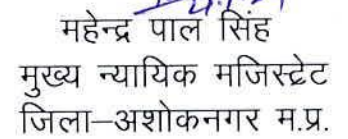 महेन्द्र पाल सिंह
मुख्य न्यायिक मजिस्ट्रेट
जिला–अशोकनगर म.प्र.